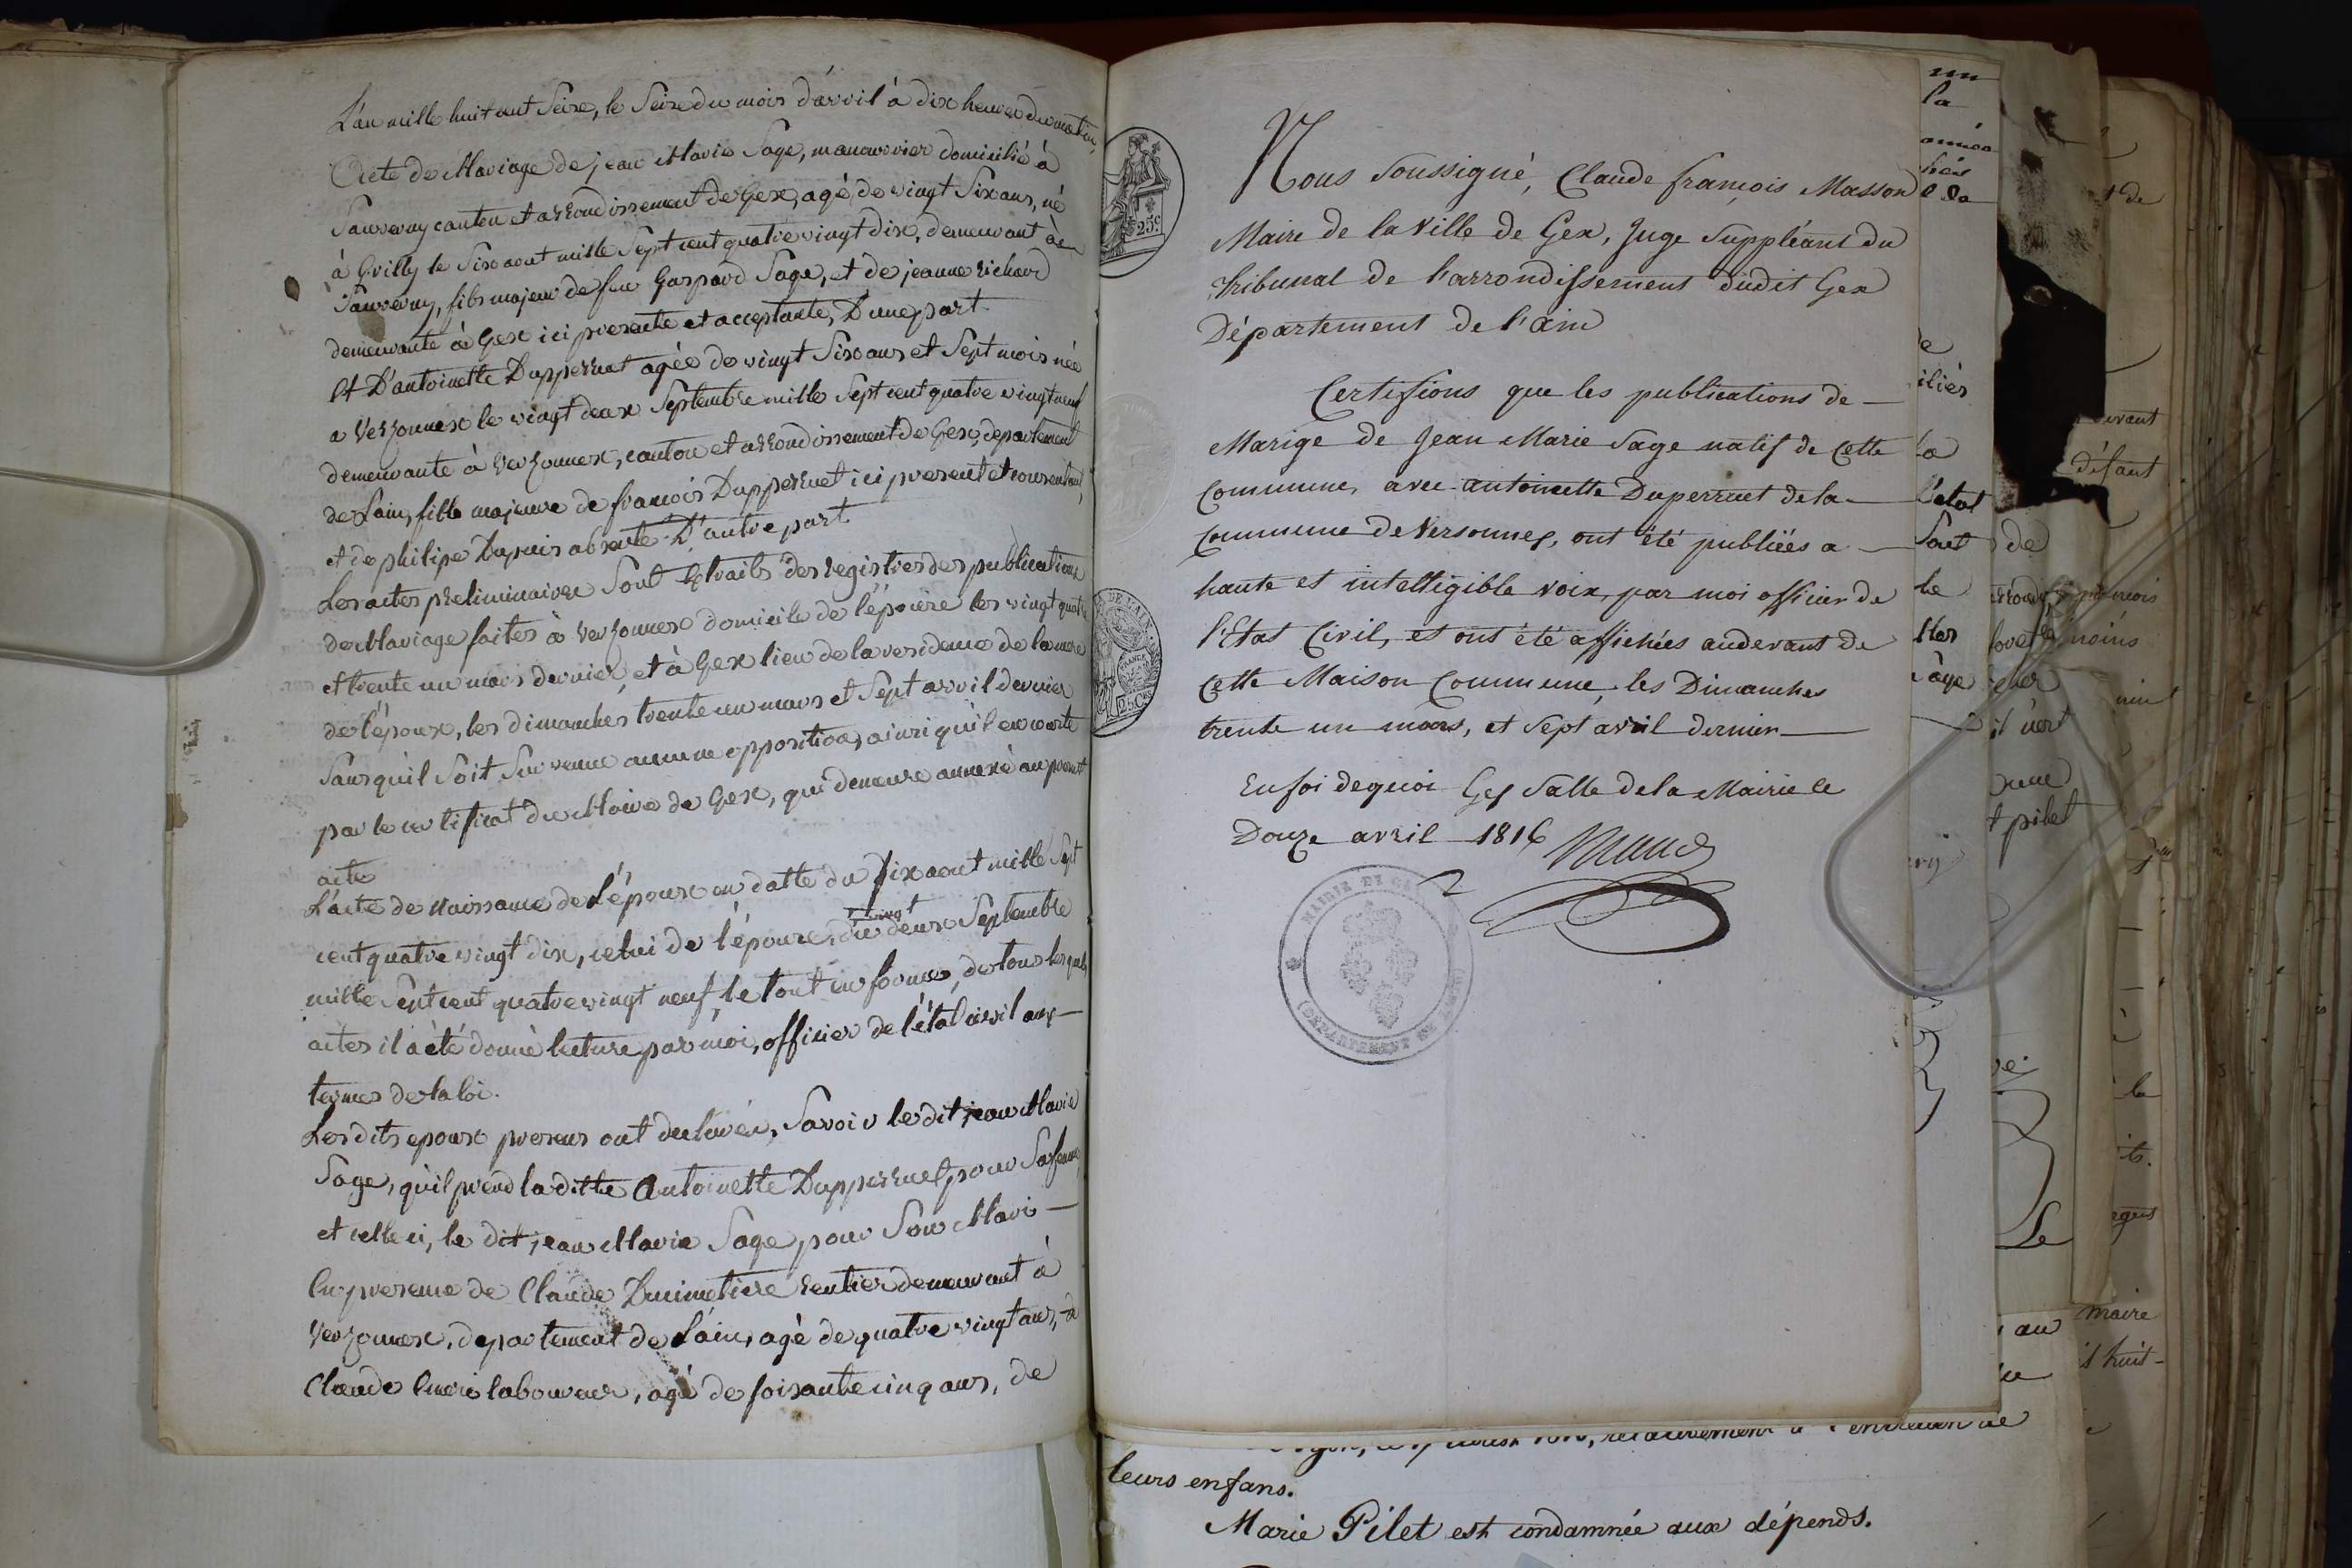 L'an mille huit cent Seize, le Seize du mois d'avril à dix heures du matin,
Acte de Mariage de jean Marie Sage, manouvrier domicilié à
Sauverny canton et arrondissement de Gex, agé de vingt Six ans, né
à Grilly le Six aout mille Sept cent quatre vingt dix, demeurant à
Sauverny, fils majeur de feu Gaspard Sage, et de jeanne Richard
demeurante à Gex ici presente et acceptante, D'une part.
Et D'antoinette Dupperrut agée de vingt Six ans et Sept mois née
a Verzonnex le vingt deux Septembre mille Sept cent quatre vingt neuf
demeurante à Verzonnex, canton et arrondissement de Gex, departement
de l'ain, fille majeure de francois Dupperruet ici present et consentant,
et de philipe Dupuis absente D'autre part.
Les actes preliminaires Sont Extraits des registres des publications
de Mariage faites à Verzonnex domicile de l'épouse les vingt quatre
et trente un mars dernier, et à Gex lieu de la residence de la mere
de l'époux, les dimanches trente un mars et Sept avril dernier
Sans qu'il Soit Survenue aucune opposition, ainsi qu'il en conste
par le certificat du Maire de Gex, qui demeure annexé au present
acte
L'acte de naissance de l'époux en datte du Six aout mille Sept
cent quatre vingt dix, celui de l'épouse, du vingt deux Septembre
mille Sept cent quatre vingt neuf, le tout en formes, des tous lesquels
actes il a été donné lecture par moi, officier de l'état civil aux
termes de la loi.
Les dits epoux presens ont declarés, Savoir le dit jean Marie
Sage, qu'il prend la ditte Antoinette Dupperruet pour Sa femme,
et celle ci, le dit jean Marie Sage pour Son Mari
En presence de Claude Ducimetiere rentier demeurant à
Verzonnex, departement de l'ain, agé de quatre vingt ans, de
Claude laboureur, agé de soixante cinq ans, de
Nous Soussigné, Claude françois Masson
Maire de la Ville de Gex, Juge Suppléant du
Tribunal de l'arrondissement dudit Gex
Département de l'ain
Certifions que les publications de
Marige de Jean Marie Sage natif de cette
Commune, avec antoinette Duperruet de la
Commune de Versonnex, ont été publiées a
haute et intelligible voix, par moi officier de
l'Etat Civil, et ont été affichées audevant de
Cette Maison Commune, les Dimanches
trente un mars, et Sept avril dernier
En foi de quoi Gex Salle de la Mairie le
Douze avril 1816
MAIRIE DE GEX
(DÉPARTEMENT DE L'AIN)
25c
25c
leurs enfans.
Marie Pilet est condamnée aux dépends.
un
la
e
iliés
la
l'etat
Sont
le
de
devant
défaut
pilet
moins
Le
au
maire
huit